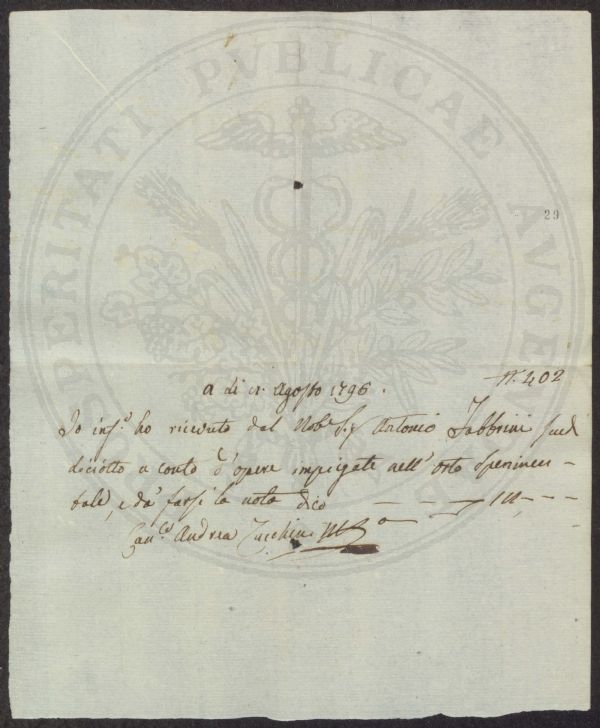 PROSPERITATI PVBLICAE AVGENDAE
29
N. 402
a di 11. Agosto 1796.
Io inf.o ho ricevuto dal Nob.e Sig. Antonio Fabbrini scudi
diciotto a conto d'opere impiegate nell'Orto Sperimen-
tale, e da farsi la nota dico
Can.co Andrea Zucchini